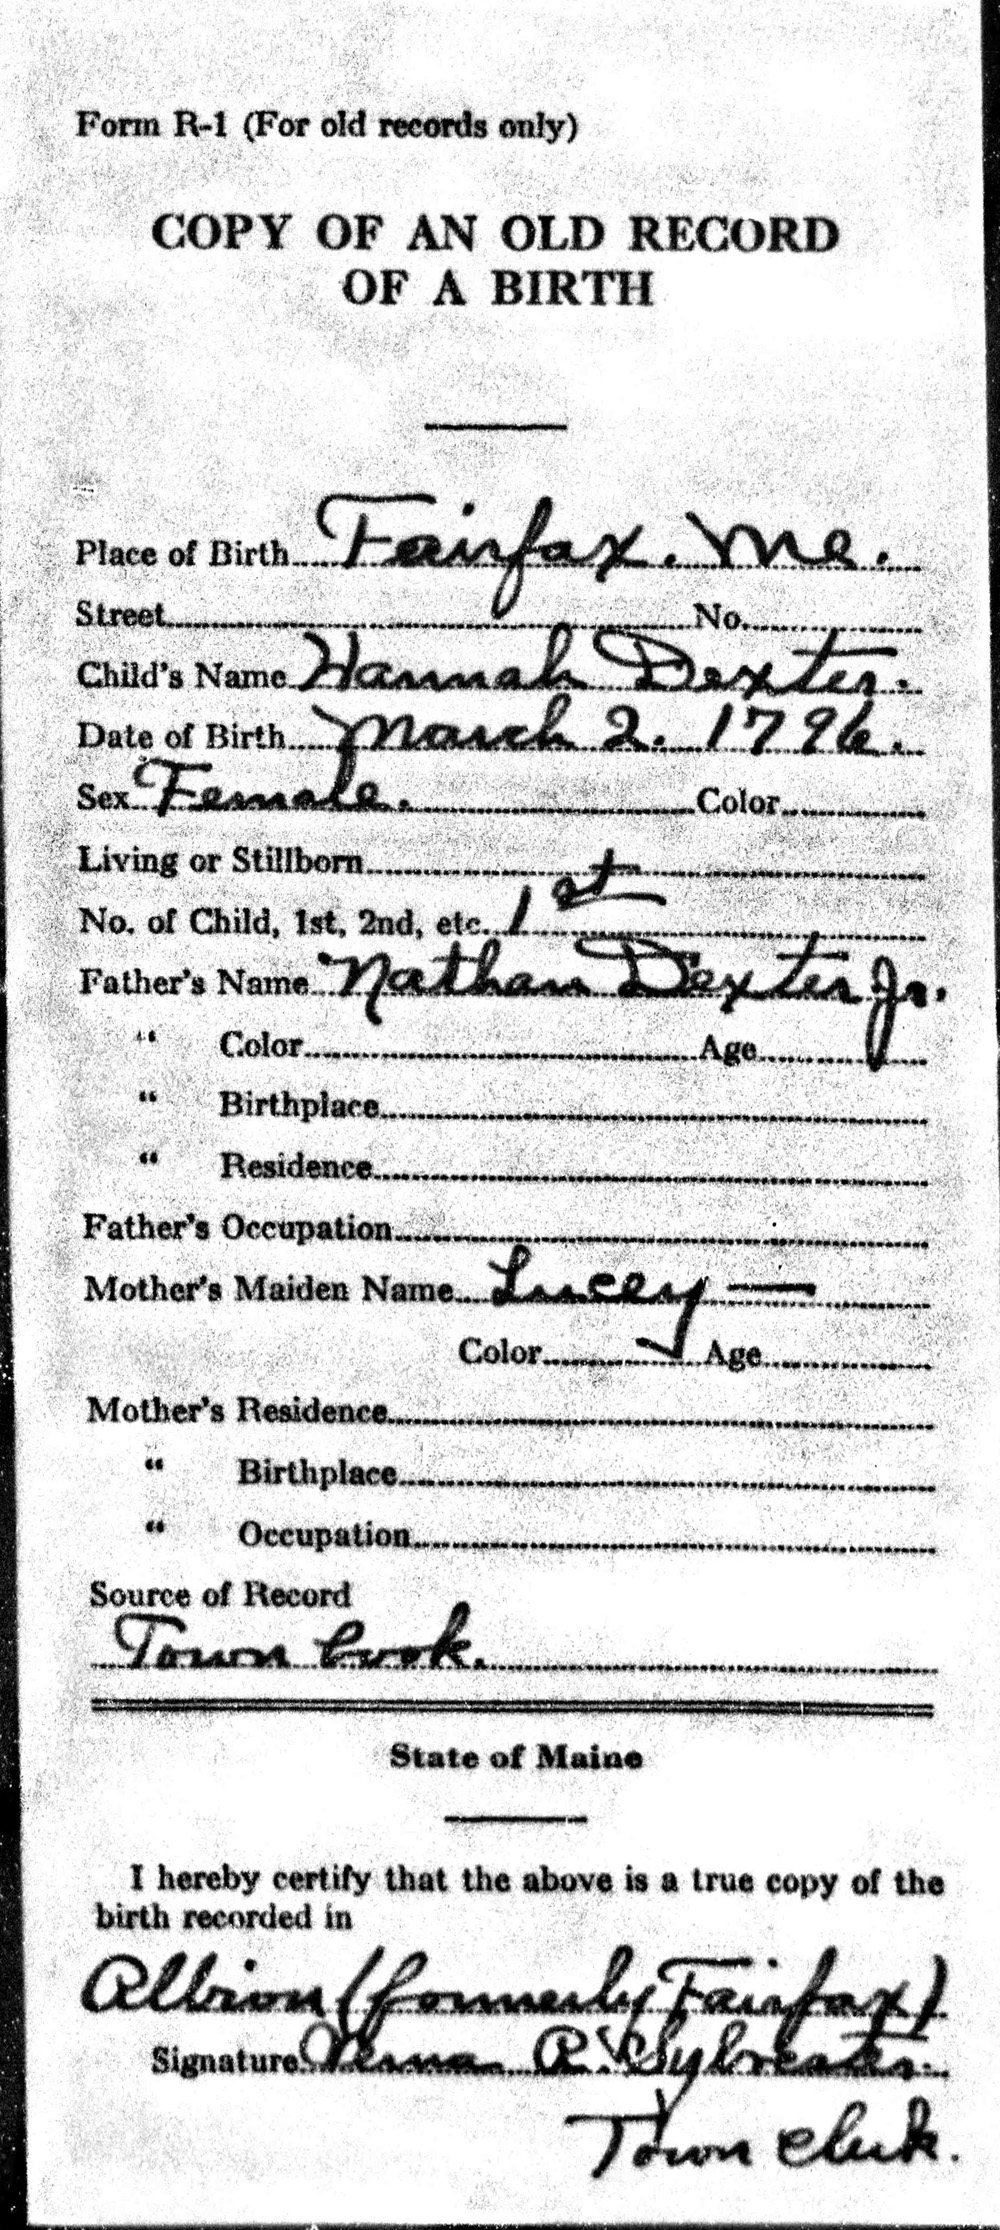 Form R-1 (For old records only)
COPY OF AN OLD RECORD
OF A BIRTH
Place of Birth Fairfax. Me.
Street No.
Child's Name Hannah Dexter.
Date of Birth March 2. 1796.
Sex Female. Color
Living or Stillborn
No. of Child, 1st, 2nd, etc. 1st
Father's Name Nathan Dexter Jr.
“ Color Age
“ Birthplace
“ Residence
Father's Occupation
Mother's Maiden Name Lucey —
Color Age
Mother's Residence
“ Birthplace
“ Occupation
Source of Record
Town book.
State of Maine
I hereby certify that the above is a true copy of the
birth recorded in
Albion (formerly Fairfax)
Signature Verna R. Sylvester.
Town Clerk.